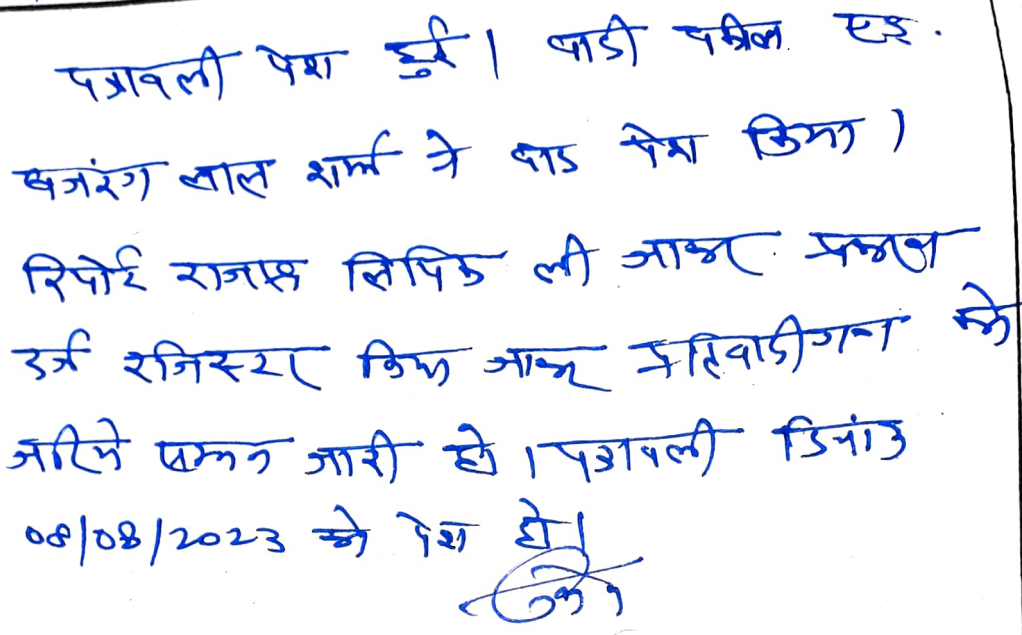 पत्रावली पेश हुई। वादी वकील एड.
बजरंग लाल शर्मा ने वाद पेश किया।
रिपोर्ट राजस्व लिपिक ली जाकर प्रकरण
दर्ज रजिस्टर किया जाकर प्रतिवादीगण को
जरिये सम्मन जारी हो। पत्रावली दिनांक
08/08/2023 को पेश हो।